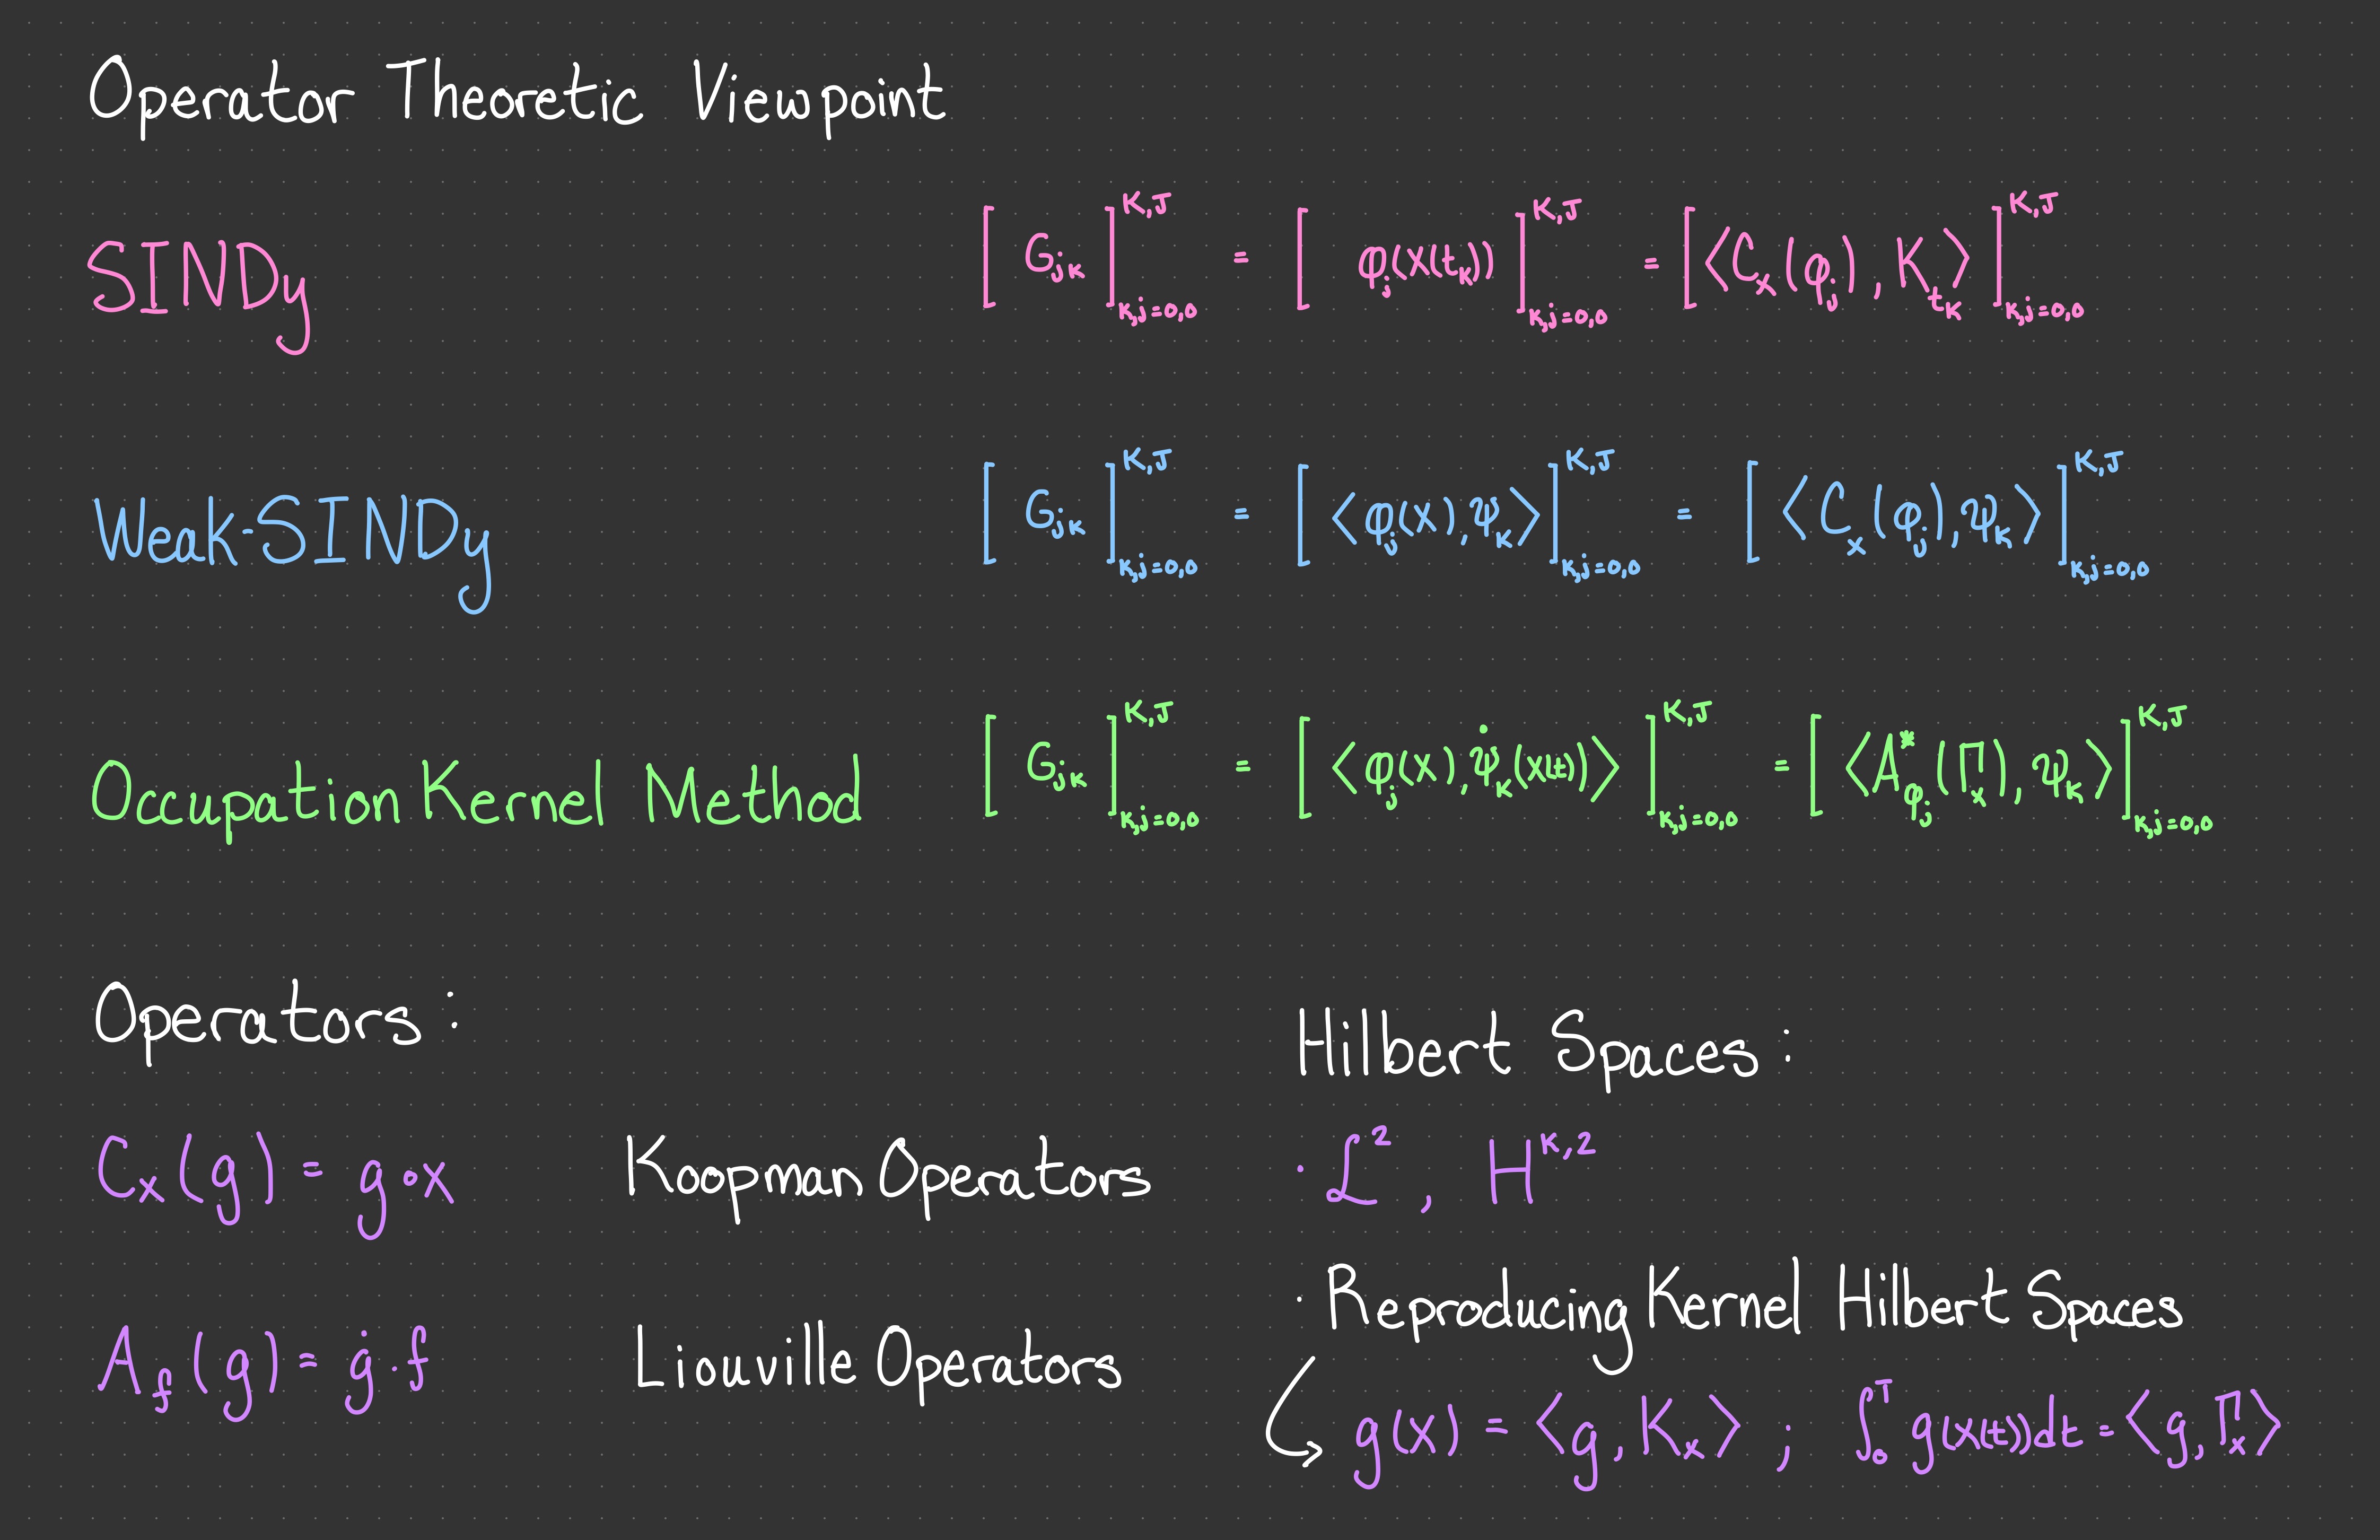 Operator Theoretic Viewpoint
SINDy [G_jk]_{k,j=0,0}^{K,J} = [φ_j(x(t_k))]_{k,j=0,0}^{K,J} = [⟨C_x(φ_j), K_{t_k}⟩]_{k,j=0,0}^{K,J}
Weak-SINDy [G_jk]_{k,j=0,0}^{K,J} = [⟨φ_j(x), ψ_k⟩]_{k,j=0,0}^{K,J} = [⟨C_x(φ_j), ψ_k⟩]_{k,j=0,0}^{K,J}
Occupation Kernel Method [G_jk]_{k,j=0,0}^{K,J} = [⟨φ_j(x), ψ̇_k(x(t))⟩]_{k,j=0,0}^{K,J} = [⟨A*_{φ_j}(Γ_x), ψ_k⟩]_{k,j=0,0}^{K,J}
Operators :
C_x(g) = g∘x Koopman Operators
A_f(g) = ġ·f Liouville Operators
Hilbert Spaces :
· ℒ², H^{k,2}
· Reproducing Kernel Hilbert Spaces
g(x) = ⟨g, K_x⟩ ; ∫_0^T g(x(t))dt = ⟨g, Γ_x⟩